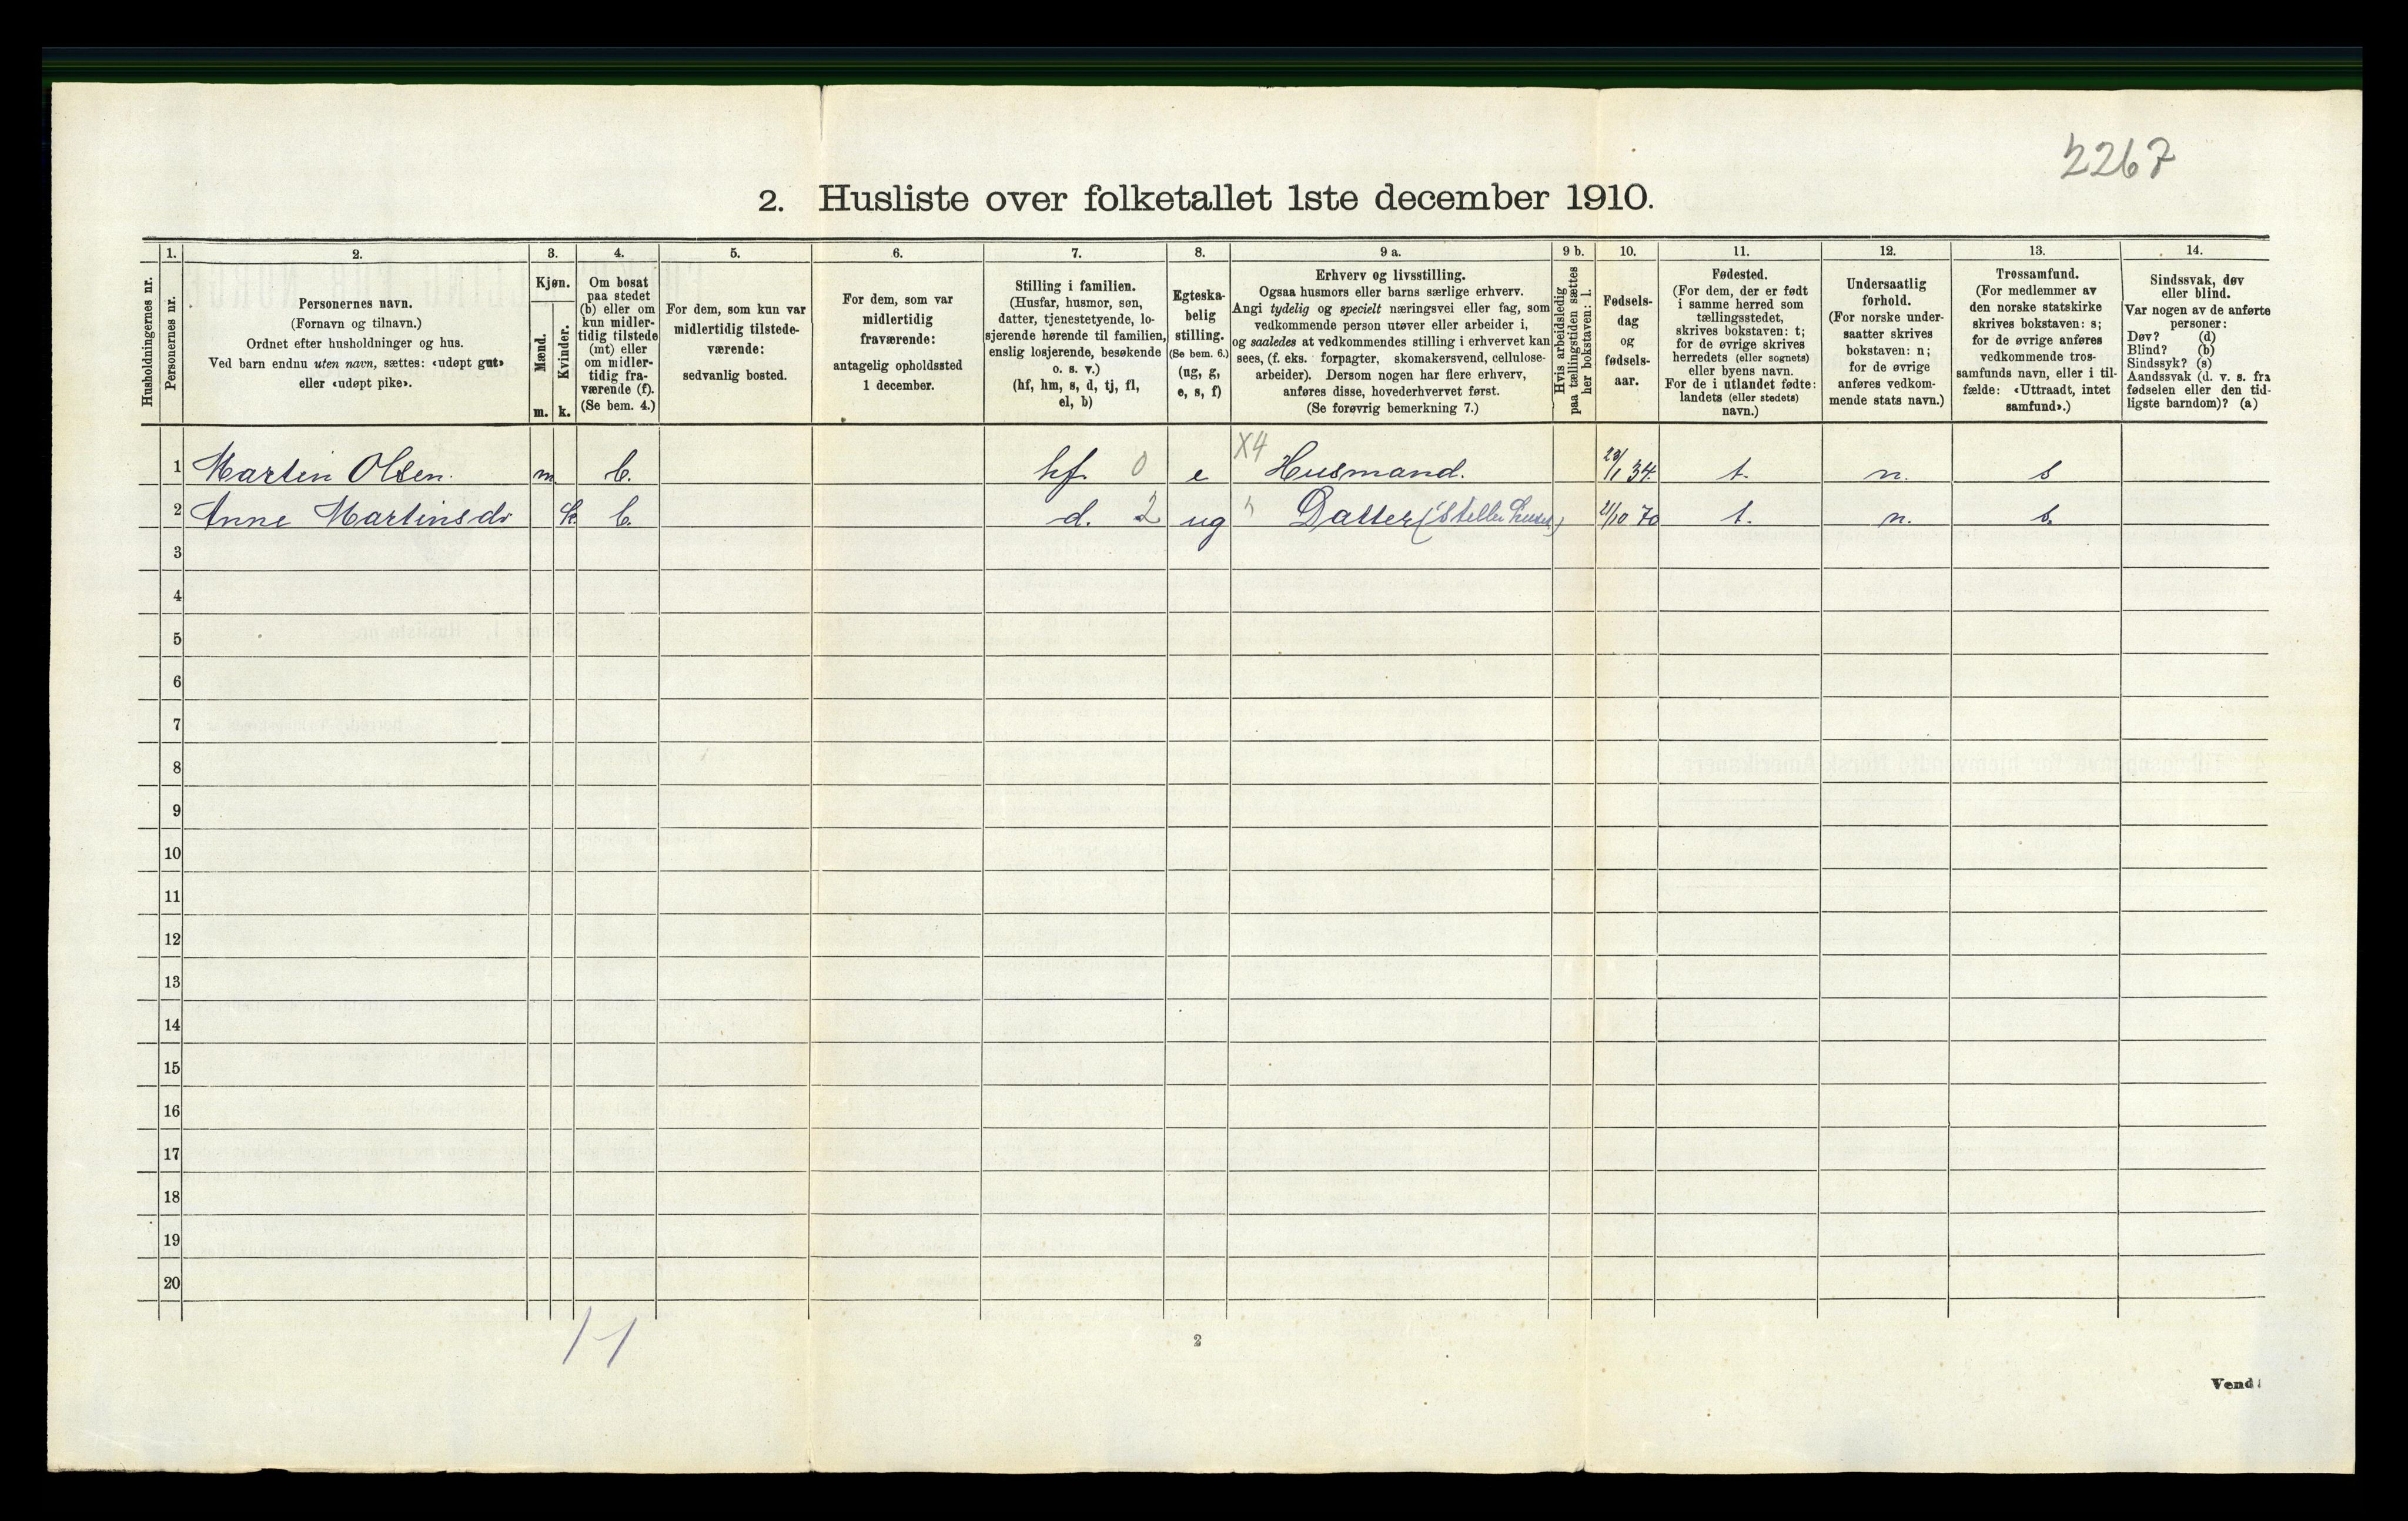 2267
2. Husliste over folketallet 1ste december 1910.
Husholdningernes nr.
1.
Personernes nr.
2.
Personernes navn.
(Fornavn og tilnavn.)
Ordnet efter husholdninger og hus.
Ved barn endnu uten navn, sættes: «udøpt gut»
eller «udøpt pike».
3.
Kjøn.
Mænd.
Kvinder.
m. k.
4.
Om bosat
paa stedet
(b) eller om
kun midler-
tidig tilstede
(mt) eller
om midler-
tidig fra-
værende (f).
(Se bem. 4.)
5.
For dem, som kun var
midlertidig tilstede-
værende:
sedvanlig bosted.
6.
For dem, som var
midlertidig
fraværende:
antagelig opholdssted
1 december.
7.
Stilling i familien.
(Husfar, husmor, søn,
datter, tjenestetyende, lo-
sjerende hørende til familien,
enslig losjerende, besøkende
o. s. v.)
(hf, hm, s, d, tj, fl,
el, b)
8.
Egteska-
belig
stilling.
(Se bem. 6.)
(ug, g,
e, s, f)
9 a.
Erhverv og livsstilling.
Ogsaa husmors eller barns særlige erhverv.
Angi tydelig og specielt næringsvei eller fag, som
vedkommende person utøver eller arbeider i,
og saaledes at vedkommendes stilling i erhvervet kan
sees, (f. eks. forpagter, skomakersvend, cellulose-
arbeider). Dersom nogen har flere erhverv,
anføres disse, hovederhvervet først.
(Se forøvrig bemerkning 7.)
9 b.
Hvis arbeidsledig
paa tællingstiden sættes
her bokstaven: l.
10.
Fødsels-
dag
og
fødsels-
aar.
11.
Fødested.
(For dem, der er født
i samme herred som
tællingsstedet,
skrives bokstaven: t;
for de øvrige skrives
herredets (eller sognets)
eller byens navn.
For de i utlandet fødte:
landets (eller stedets)
navn.)
12.
Undersaatlig
forhold.
(For norske under-
saatter skrives
bokstaven: n;
for de øvrige
anføres vedkom-
mende stats navn.)
13.
Trossamfund.
(For medlemmer av
den norske statskirke
skrives bokstaven: s;
for de øvrige anføres
vedkommende tros-
samfunds navn, eller i til-
fælde: «Uttraadt, intet
samfund».)
14.
Sindssvak, døv
eller blind.
Var nogen av de anførte
personer:
Døv? (d)
Blind? (b)
Sindssyk? (s)
Aandssvak (d. v. s. fra
fødselen eller den tid-
ligste barndom)? (a)
1 Martin Olsen. m b. hf. 0 e X4 Husmand. 23/1 34. t. n. s
2 Anne Martinsdr k. b. d. 2 ug Datter (Steller huset) 21/10 70 t. n. s.
3
4
5
6
7
8
9
10
11
12
13
14
15
16
17
18
19
20
1-1
2
Vend!